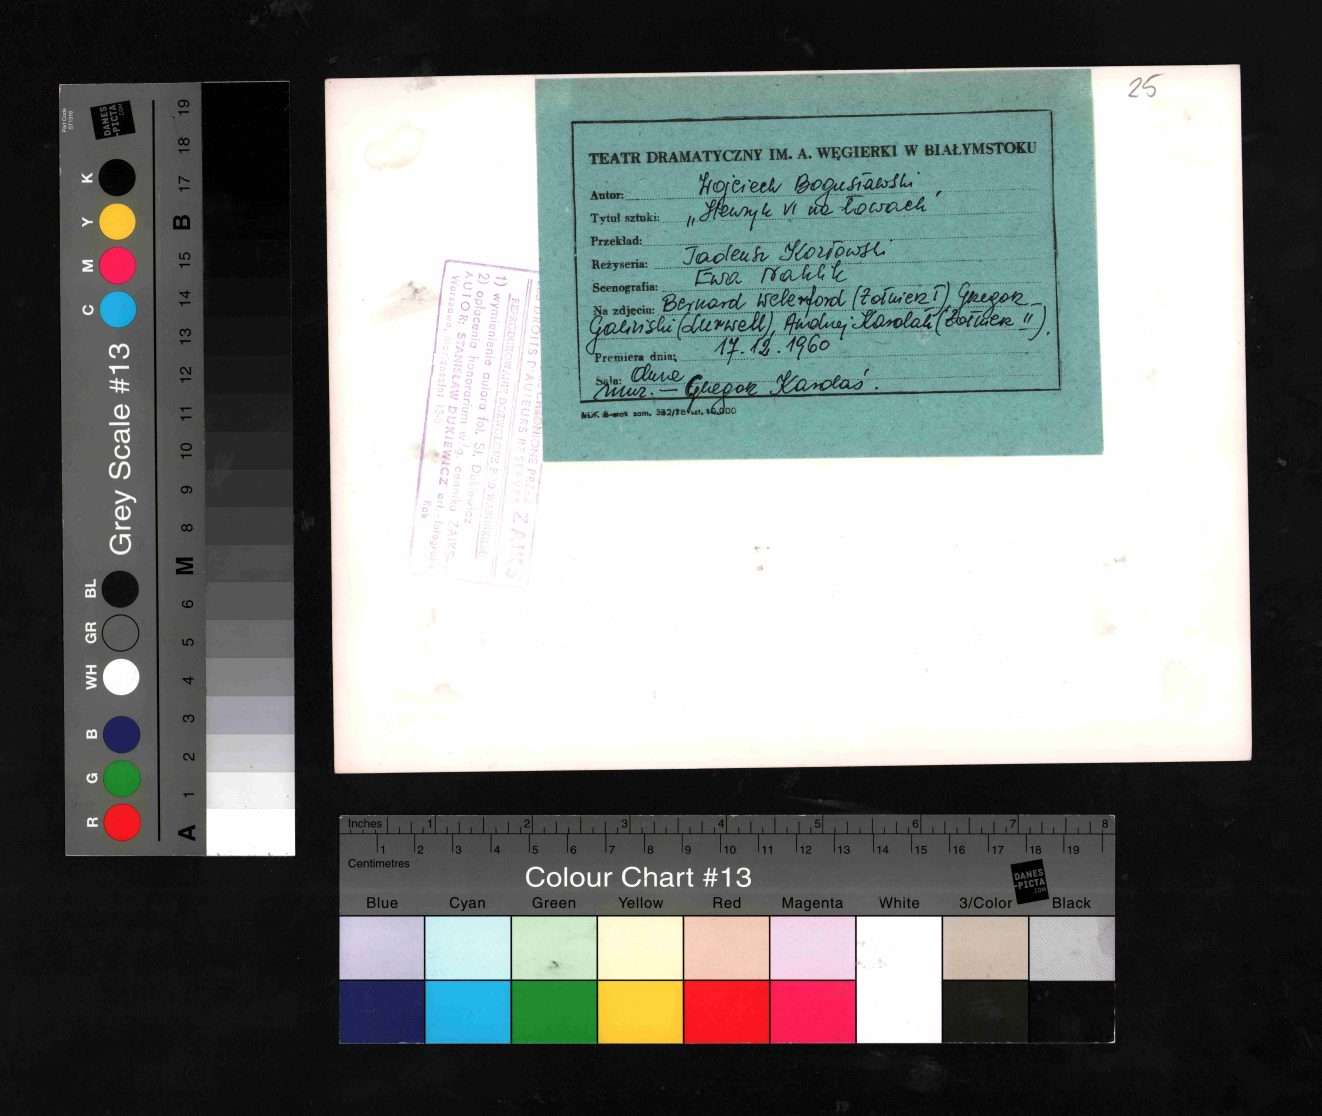 25
TEATR DRAMATYCZNY IM. A. WĘGIERKI W BIAŁYMSTOKU
Autor: Wojciech Bogusławski
Tytuł sztuki: „Henryk VI na Łowach"
Przekład:
Reżyseria: Tadeusz Kozłowski
Scenografia: Ewa Nahlik
Na zdjęciu: Bernard (Żołnierz I) Grzegorz
Galiński (Lurwell), Andrzej Karolak (Żołnierz II).
Premiera dnia: 17.12.1960
Sala: Duże
muz. — Grzegorz Kardaś.
zam. 382/78
ZAIKS
1) wymienienie autora fot. St. Dukiewicz
2) opłacenia honorarium w/g cennika ZAIKS
AUTOR: STANISŁAW DUKIEWICZ art.-fotografik
Rok
Part Code
ST1316
DANES
-PICTA
.COM
Grey Scale #13
K Y M C BL GR WH B G R
A 1 2 3 4 5 6 M 8 9 10 11 12 13 14 15 B 17 18 19
Inches 1 2 3 4 5 6 7 8
1 2 3 4 5 6 7 8 9 10 11 12 13 14 15 16 17 18 19
Centimetres
Colour Chart #13
DANES
-PICTA
.COM
Blue Cyan Green Yellow Red Magenta White 3/Color Black